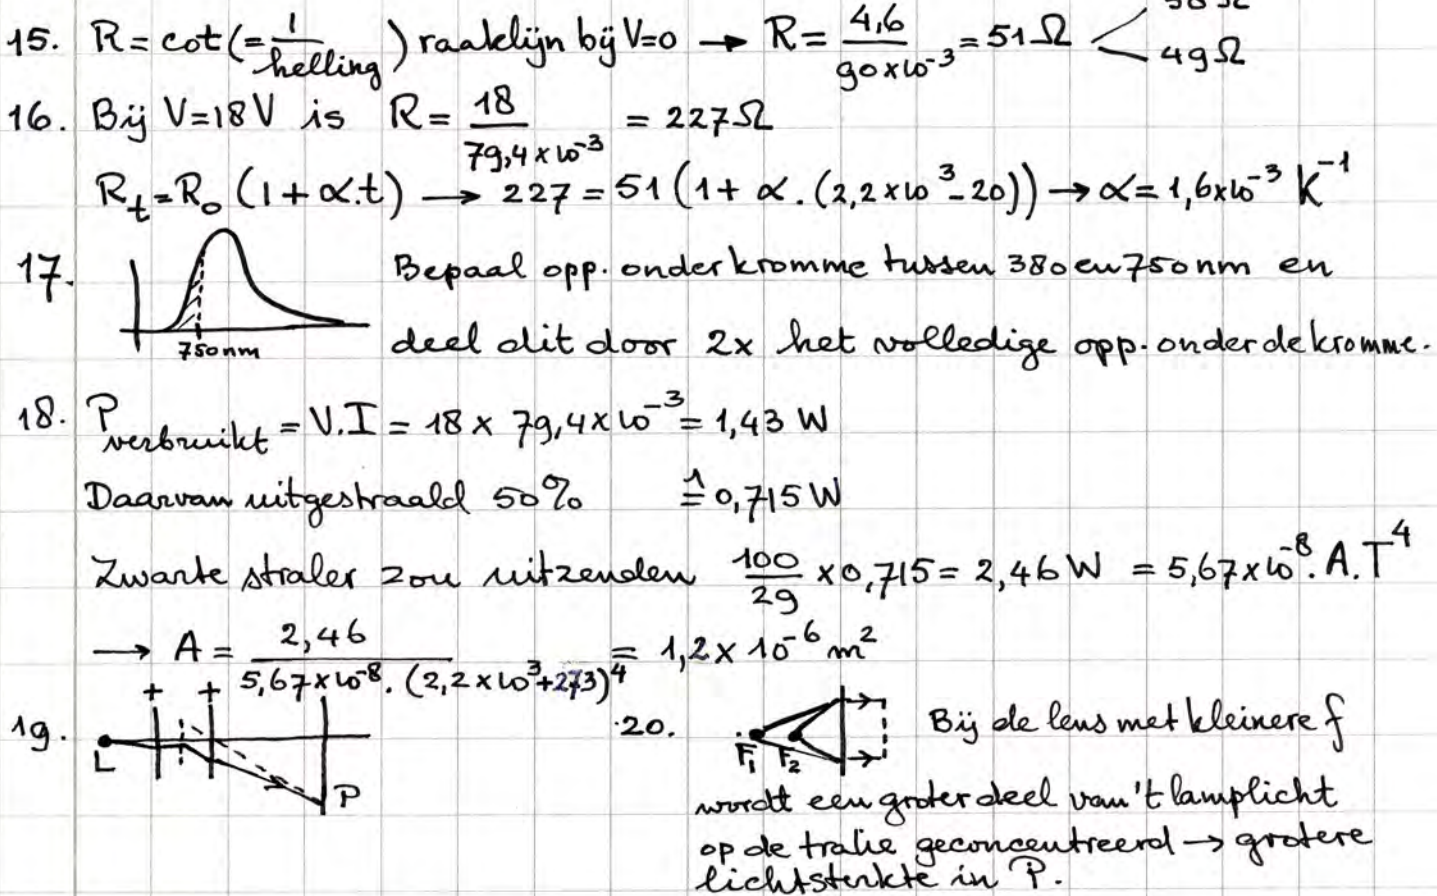 15. R = cot (= 1/helling) raaklijn bij V=0 → R = 4,6/90×10⁻³ = 51 Ω < 49 Ω
16. Bij V=18V is R = 18/79,4×10⁻³ = 227 Ω
R_t = R_0 (1 + α.t) → 227 = 51 (1 + α . (2,2×10³ - 20)) → α = 1,6×10⁻³ K⁻¹
17. Bepaal opp. onder kromme tussen 380 en 750 nm en
750nm deel dit door 2x het volledige opp. onder de kromme.
18. P_verbruikt = V.I = 18 × 79,4×10⁻³ = 1,43 W
Daarvan uitgestraald 50% ≙ 0,715 W
Zwarte straler zou uitzenden 100/29 × 0,715 = 2,46 W = 5,67×10⁻⁸. A.T⁴
→ A = 2,46/5,67×10⁻⁸. (2,2×10³+273)⁴ = 1,2 × 10⁻⁶ m²
19. L + + P
20. F₁ F₂ Bij de lens met kleinere f
wordt een groter deel van 't lamplicht
op de tralie geconcentreerd → grotere
lichtsterkte in P.